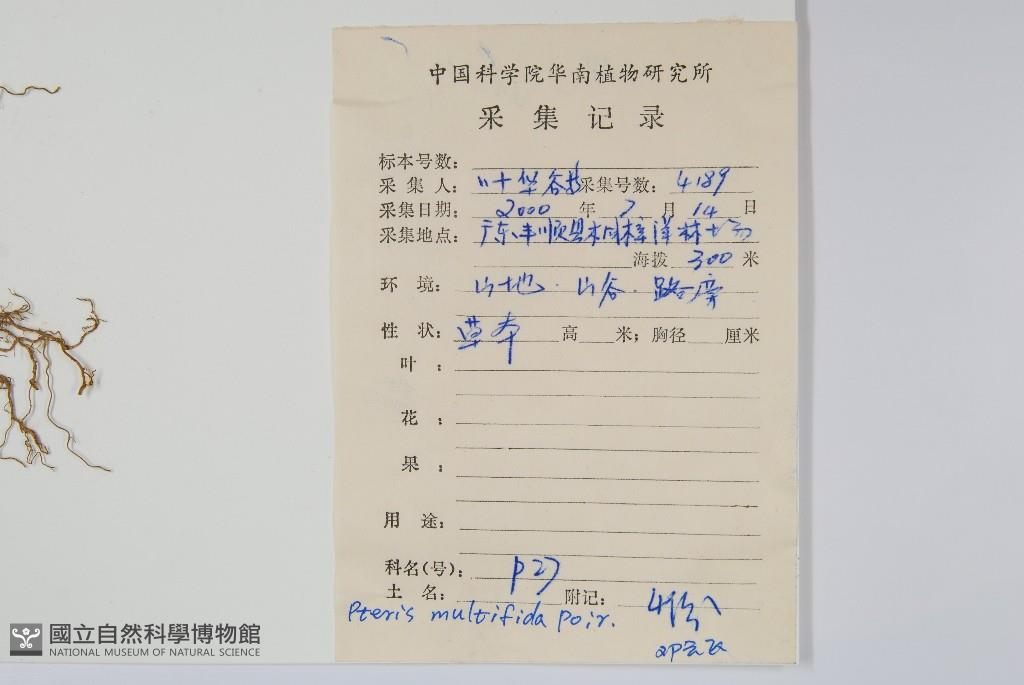 中国科学院华南植物研究所
采集记录
标本号数：
采集人：叶华谷 采集号数：4189
采集日期：2000年7月14日
采集地点：广东丰顺县桐梓洋林场
海拨 300 米
环境：山地．山谷．路旁
性状：草本 高 米；胸径 厘米
叶：
花：
果：
用途：
科名(号)：P27
土名： 附记：
Pteris multifida poir.
國立自然科學博物館
NATIONAL MUSEUM OF NATURAL SCIENCE